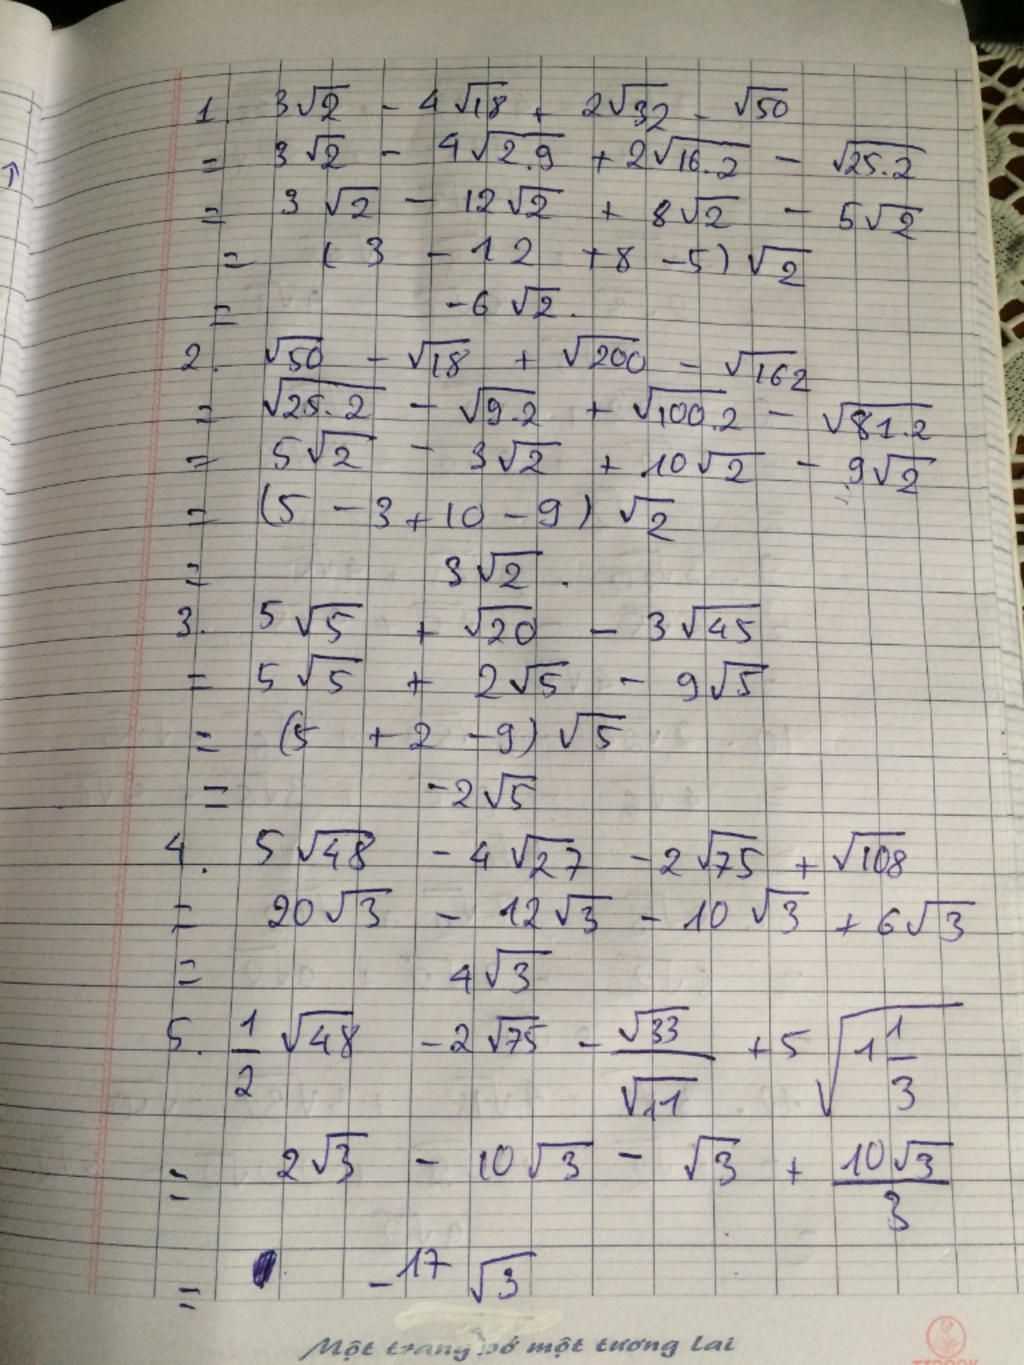 1. 3√2 - 4√18 + 2√32 - √50
= 3√2 - 4√2.9 + 2√16.2 - √25.2
= 3√2 - 12√2 + 8√2 - 5√2
= (3 - 12 + 8 - 5)√2
= -6√2.
2. √50 - √18 + √200 - √162
= √25.2 - √9.2 + √100.2 - √81.2
= 5√2 - 3√2 + 10√2 - 9√2
= (5 - 3 + 10 - 9) √2
= 3√2.
3. 5√5 + √20 - 3√45
= 5√5 + 2√5 - 9√5
= (5 + 2 - 9) √5
= -2√5
4. 5√48 - 4√27 - 2√75 + √108
= 20√3 - 12√3 - 10√3 + 6√3
= 4√3
5. 1/2 √48 - 2√75 - √33/√11 + 5√(1 1/3)
= 2√3 - 10√3 - √3 + 10√3/3
= -17 √3
Một trang vở một tương lai